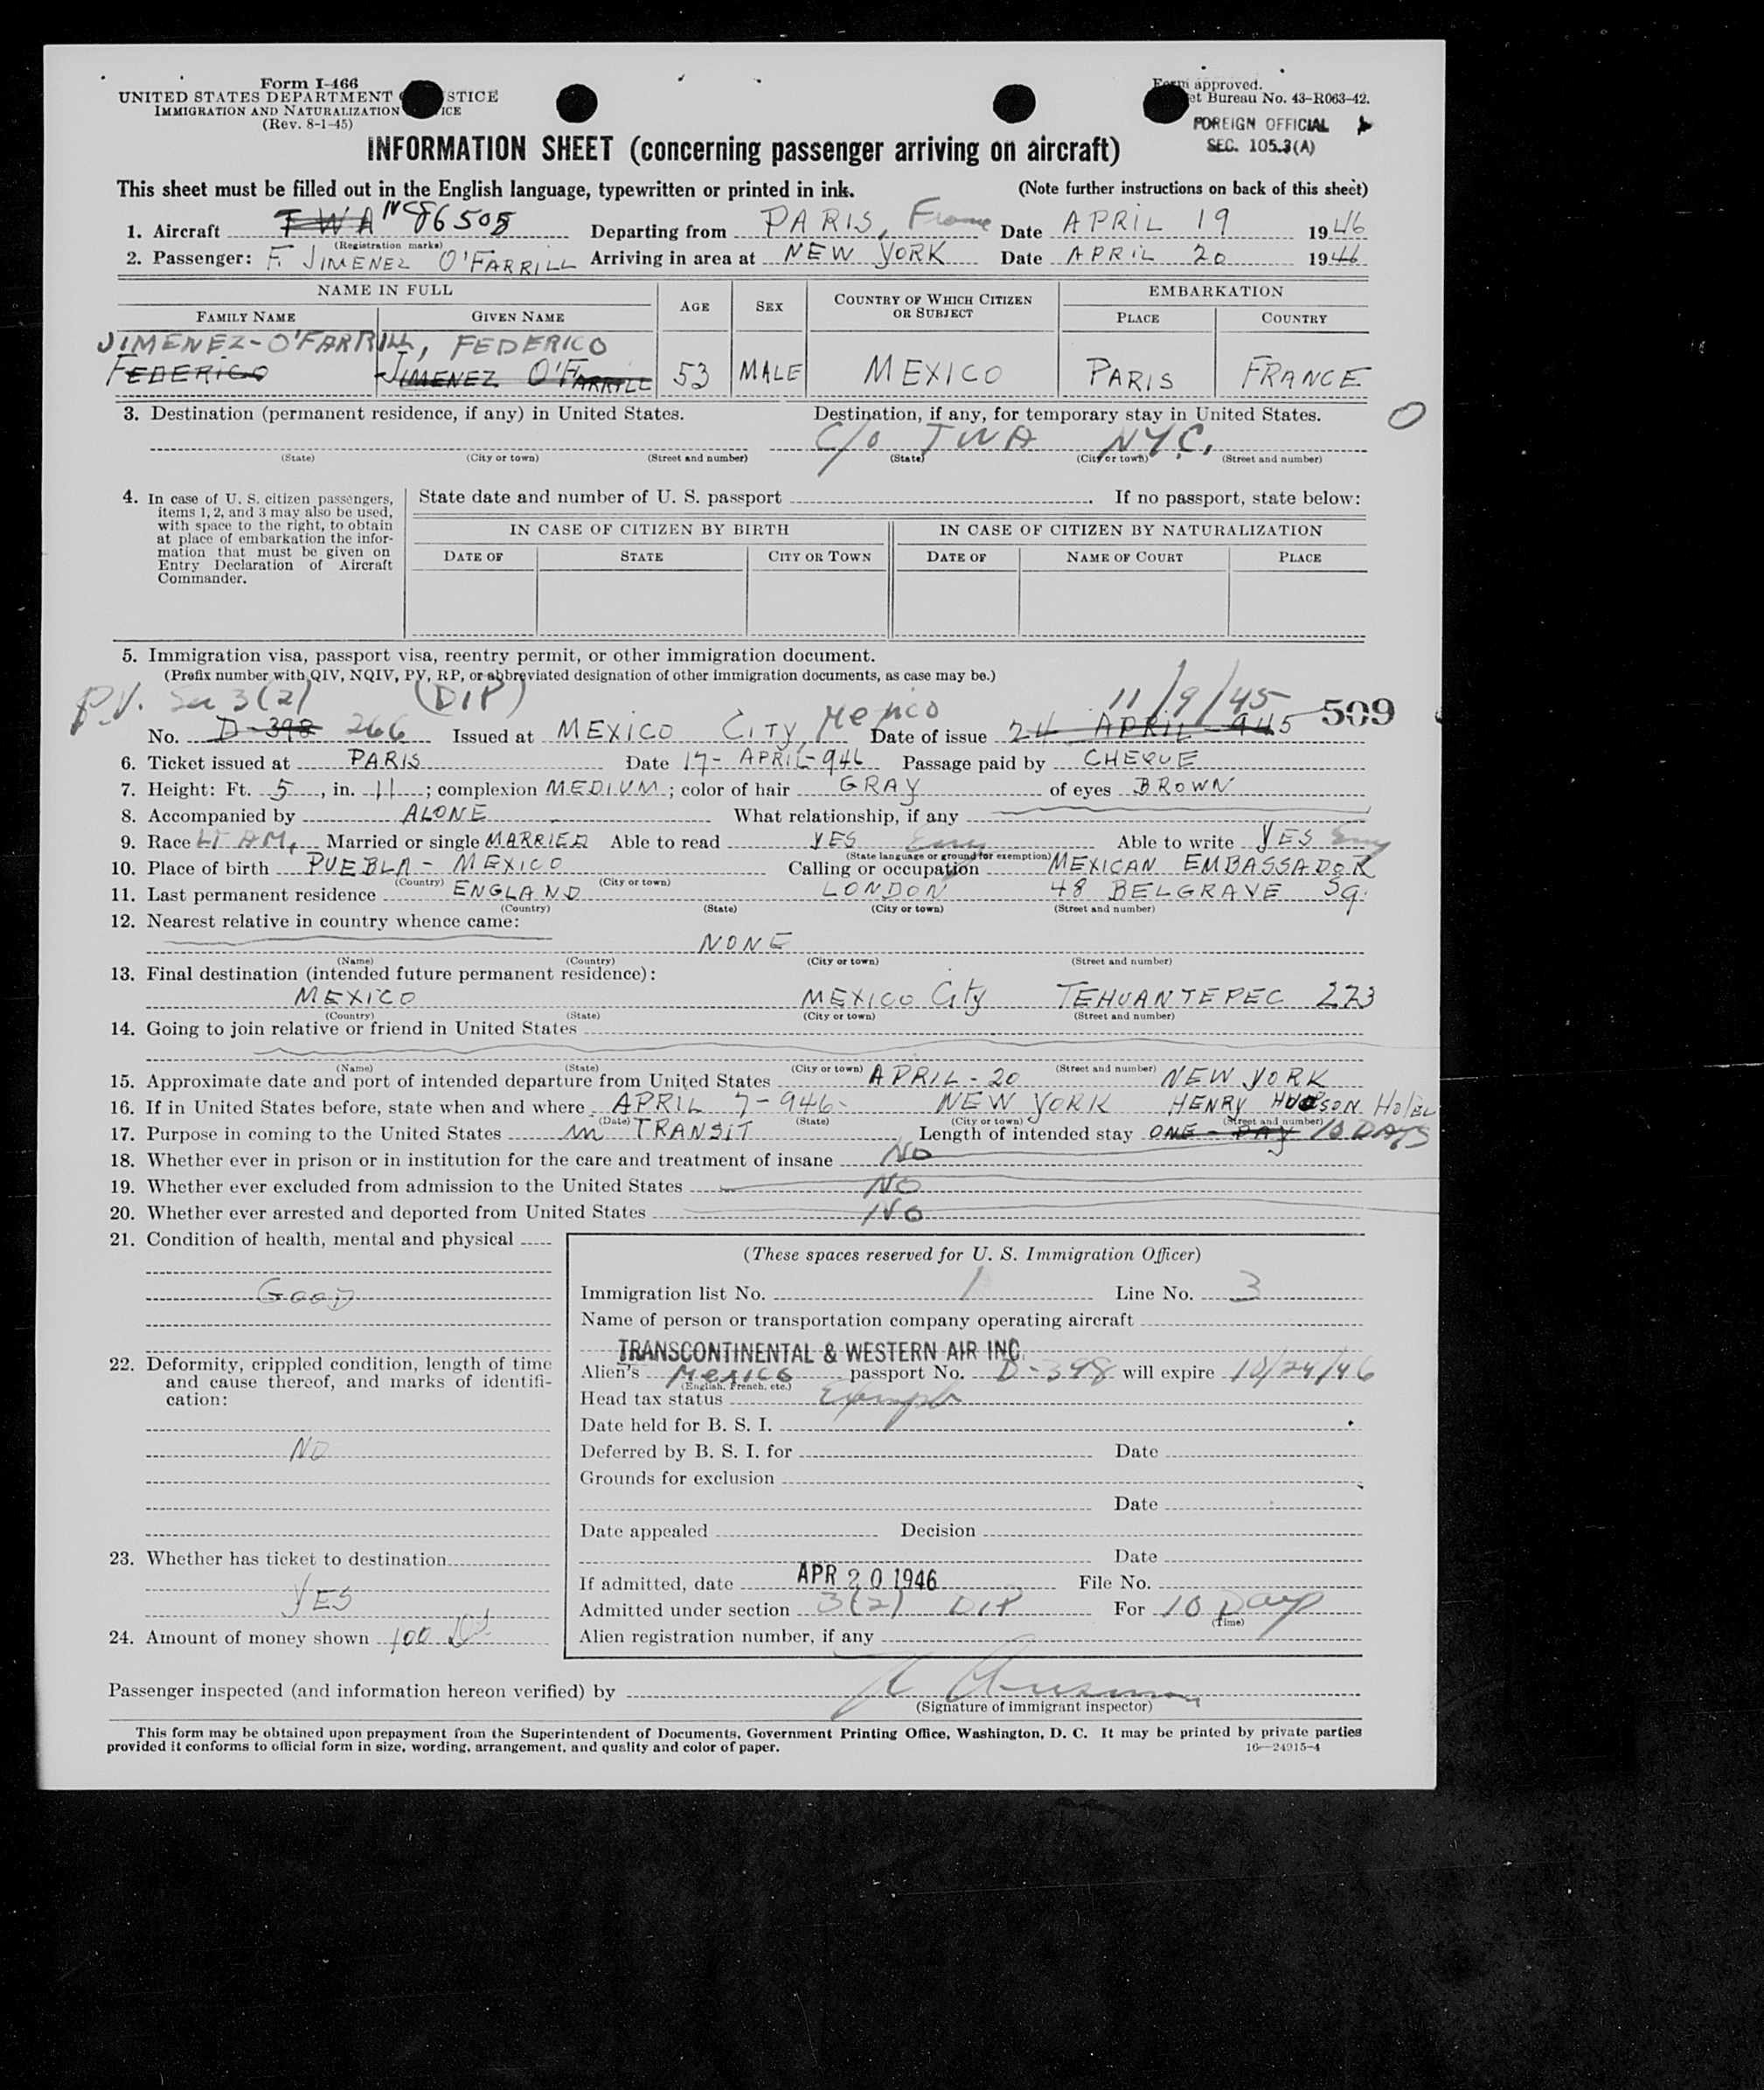 Form I-466
UNITED STATES DEPARTMENT STICE
IMMIGRATION AND NATURALIZATION ICE
(Rev. 8-1-45)
Form approved.
et Bureau No. 43-R063-42.
FOREIGN OFFICIAL
SEC. 105.3(A)
INFORMATION SHEET (concerning passenger arriving on aircraft)
This sheet must be filled out in the English language, typewritten or printed in ink. (Note further instructions on back of this sheet)
1. Aircraft TWA NC86505 Departing from PARIS, France Date APRIL 19 1946
(Registration marks)
2. Passenger: F. JIMENEZ O'FARRILL Arriving in area at NEW YORK Date APRIL 20 1946
NAME IN FULL AGE SEX COUNTRY OF WHICH CITIZEN OR SUBJECT EMBARKATION
FAMILY NAME GIVEN NAME PLACE COUNTRY
JIMENEZ-O'FARRILL, FEDERICO
FEDERICO JIMENEZ O'FARRILL 53 MALE MEXICO PARIS FRANCE
3. Destination (permanent residence, if any) in United States. Destination, if any, for temporary stay in United States.
C/o TWA NYC.
(State) (City or town) (Street and number) (State) (City or town) (Street and number)
4. In case of U. S. citizen passengers, items 1, 2, and 3 may also be used, with space to the right, to obtain at place of embarkation the information that must be given on Entry Declaration of Aircraft Commander.
State date and number of U. S. passport . If no passport, state below:
IN CASE OF CITIZEN BY BIRTH IN CASE OF CITIZEN BY NATURALIZATION
DATE OF STATE CITY OR TOWN DATE OF NAME OF COURT PLACE
5. Immigration visa, passport visa, reentry permit, or other immigration document.
(Prefix number with QIV, NQIV, PV, RP, or abbreviated designation of other immigration documents, as case may be.)
P.V. Sec 3(2) (DIP) 11/9/45 509
No. D-398 266 Issued at MEXICO CITY, Mexico Date of issue 24 APRIL 945
6. Ticket issued at PARIS Date 17-APRIL-946 Passage paid by CHEQUE
7. Height: Ft. 5, in. 11; complexion MEDIUM; color of hair GRAY of eyes BROWN
8. Accompanied by ALONE What relationship, if any
9. Race LT AM. Married or single MARRIED Able to read YES Eng Able to write YES Eng
(State language or ground for exemption)
10. Place of birth PUEBLA - MEXICO Calling or occupation MEXICAN EMBASSADOR
(Country) (City or town)
11. Last permanent residence ENGLAND LONDON 48 BELGRAVE Sq.
(Country) (State) (City or town) (Street and number)
12. Nearest relative in country whence came:
NONE
(Name) (Country) (City or town) (Street and number)
13. Final destination (intended future permanent residence):
MEXICO MEXICO City TEHUANTEPEC 223
(Country) (State) (City or town) (Street and number)
14. Going to join relative or friend in United States
(Name) (State) (City or town) (Street and number)
15. Approximate date and port of intended departure from United States APRIL-20 NEW YORK
16. If in United States before, state when and where APRIL 7-946- NEW YORK HENRY HUDSON HOTEL
(Date) (State) (City or town) (Street and number)
17. Purpose in coming to the United States in TRANSIT Length of intended stay ONE-DAY 10 DAYS
18. Whether ever in prison or in institution for the care and treatment of insane NO
19. Whether ever excluded from admission to the United States NO
20. Whether ever arrested and deported from United States NO
21. Condition of health, mental and physical
GOOD
22. Deformity, crippled condition, length of time and cause thereof, and marks of identification:
NO
23. Whether has ticket to destination
YES
24. Amount of money shown 100
(These spaces reserved for U. S. Immigration Officer)
Immigration list No. 1 Line No. 3
Name of person or transportation company operating aircraft
TRANSCONTINENTAL & WESTERN AIR INC.
Alien's Mexico passport No. D-398 will expire 10/24/46
(English, French, etc.)
Head tax status Exempt
Date held for B. S. I.
Deferred by B. S. I. for Date
Grounds for exclusion
Date
Date appealed Decision
Date
If admitted, date APR 20 1946 File No.
Admitted under section 3(2) DIP For 10 Days
(Time)
Alien registration number, if any
Passenger inspected (and information hereon verified) by
(Signature of immigrant inspector)
This form may be obtained upon prepayment from the Superintendent of Documents, Government Printing Office, Washington, D. C. It may be printed by private parties
provided it conforms to official form in size, wording, arrangement, and quality and color of paper. 16—24915-4